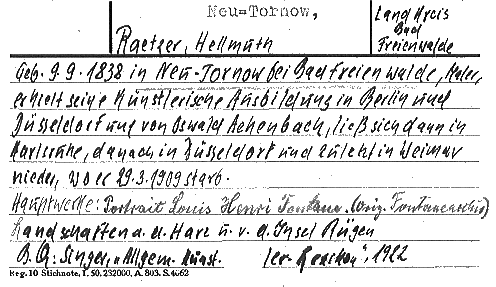 Neu-Tornow,
Land Kreis
Bad
Freienwalde
Raetzer, Hellmuth
Geb. 9.9.1838 in Neu-Tornow bei Bad Freienwalde, Maler,
erhielt seine Künstlerische Ausbildung in Berlin und
Düsseldorf und von Oswald Achenbach, ließ sich dann in
Karlsruhe, danach in Düsseldorf und zuletzt in Weimar
nieder, wo er 29.3.1909 starb.
Hauptwerke: Portrait Louis Henri Fontane. (Orig. Fontanearchiv)
Landschaften a. d. Harz u. v. d. Insel Rügen
B.Q: Singer, "Allgem. Künst. ler-Lexikon", 1922
Reg. 10 Stichnote, I. 50, 232000, A. 803. S. 4662